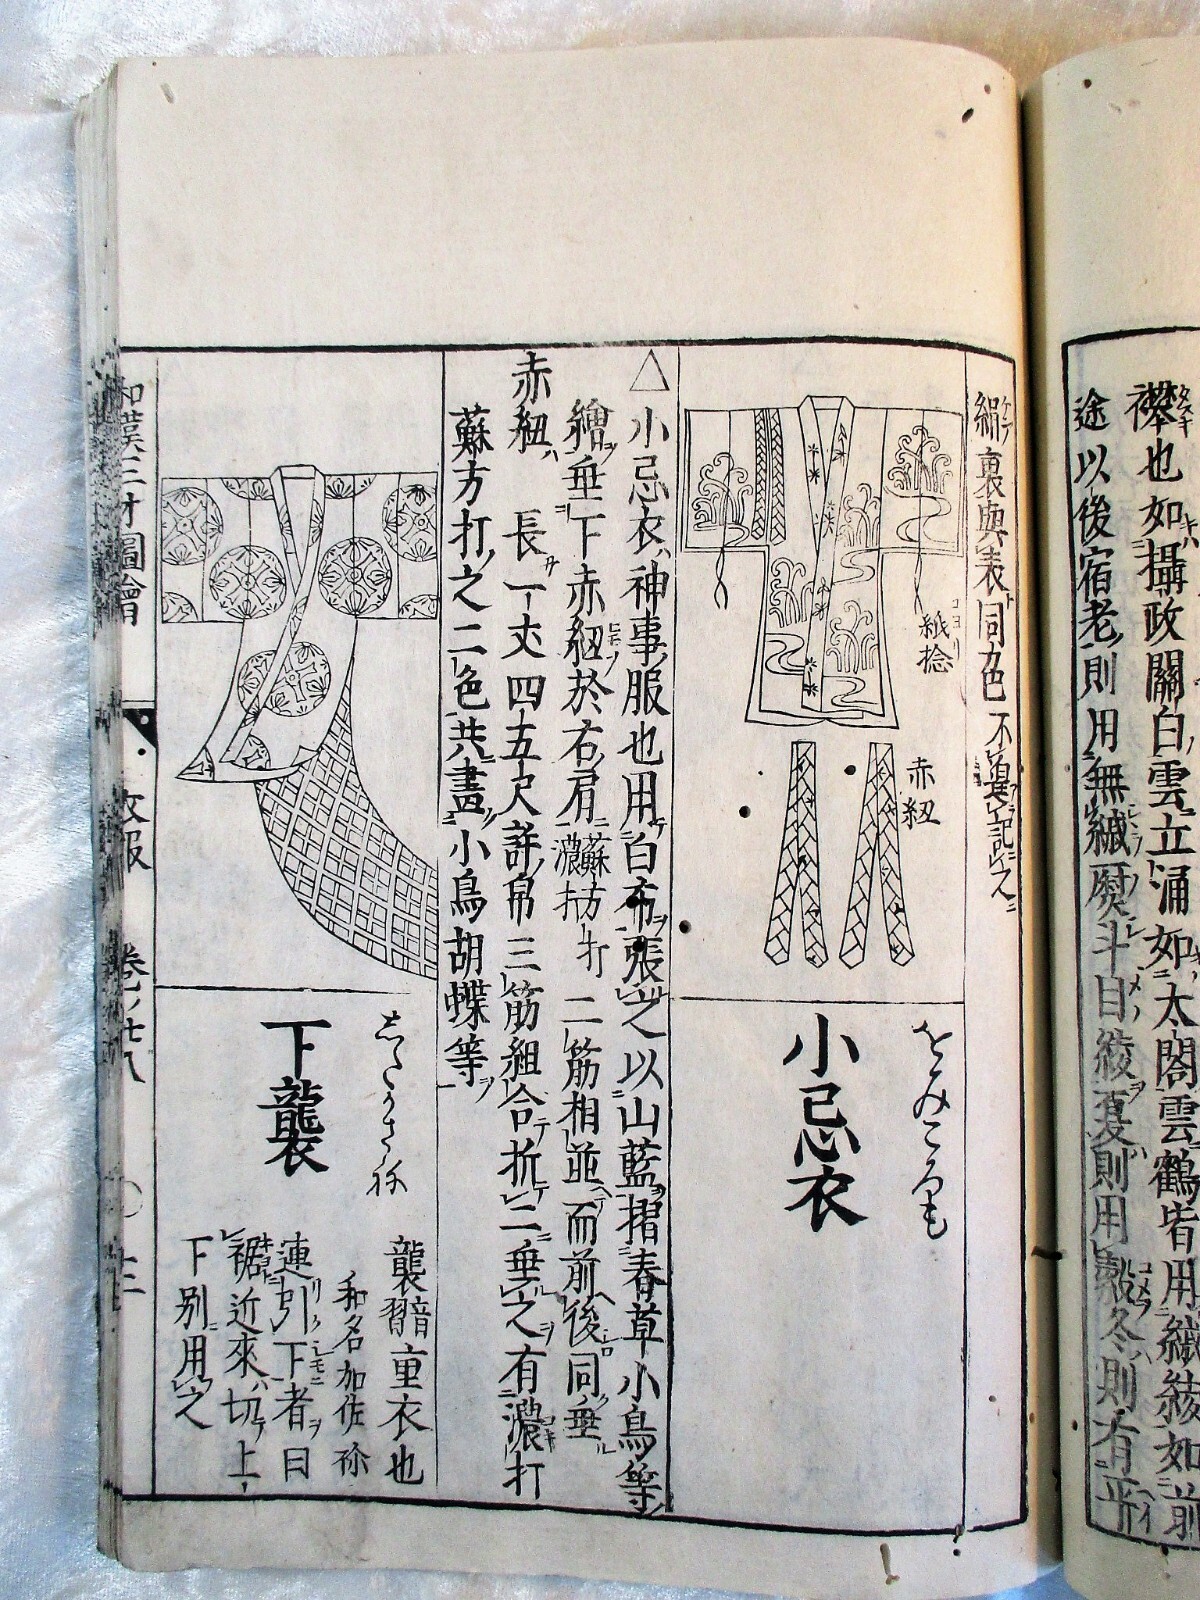 襷也如攝政關白雲立涌如太閤雲鶴皆用綾如前
途以後宿老則用無紋熨斗目綾夏則用縠冬則有平
絹裏與表同色不異記之
紙捻
赤紐
をみころも
小忌衣
△小忌衣神事服也用白布張之以山藍摺春草小鳥等
繪垂下赤紐於右肩蘇方打濃打二筋相並而前後同垂
赤紐長一丈四五尺許帛三筋組合折二垂之有濃打
蘇方打之二色共畫小鳥胡蝶等
したかさね
下襲
襲音習重衣也
和名加佐祢
連引下者曰
裾近來切上
下別用之
和漢三才圖會 衣服 卷ノ廿八 〇十二